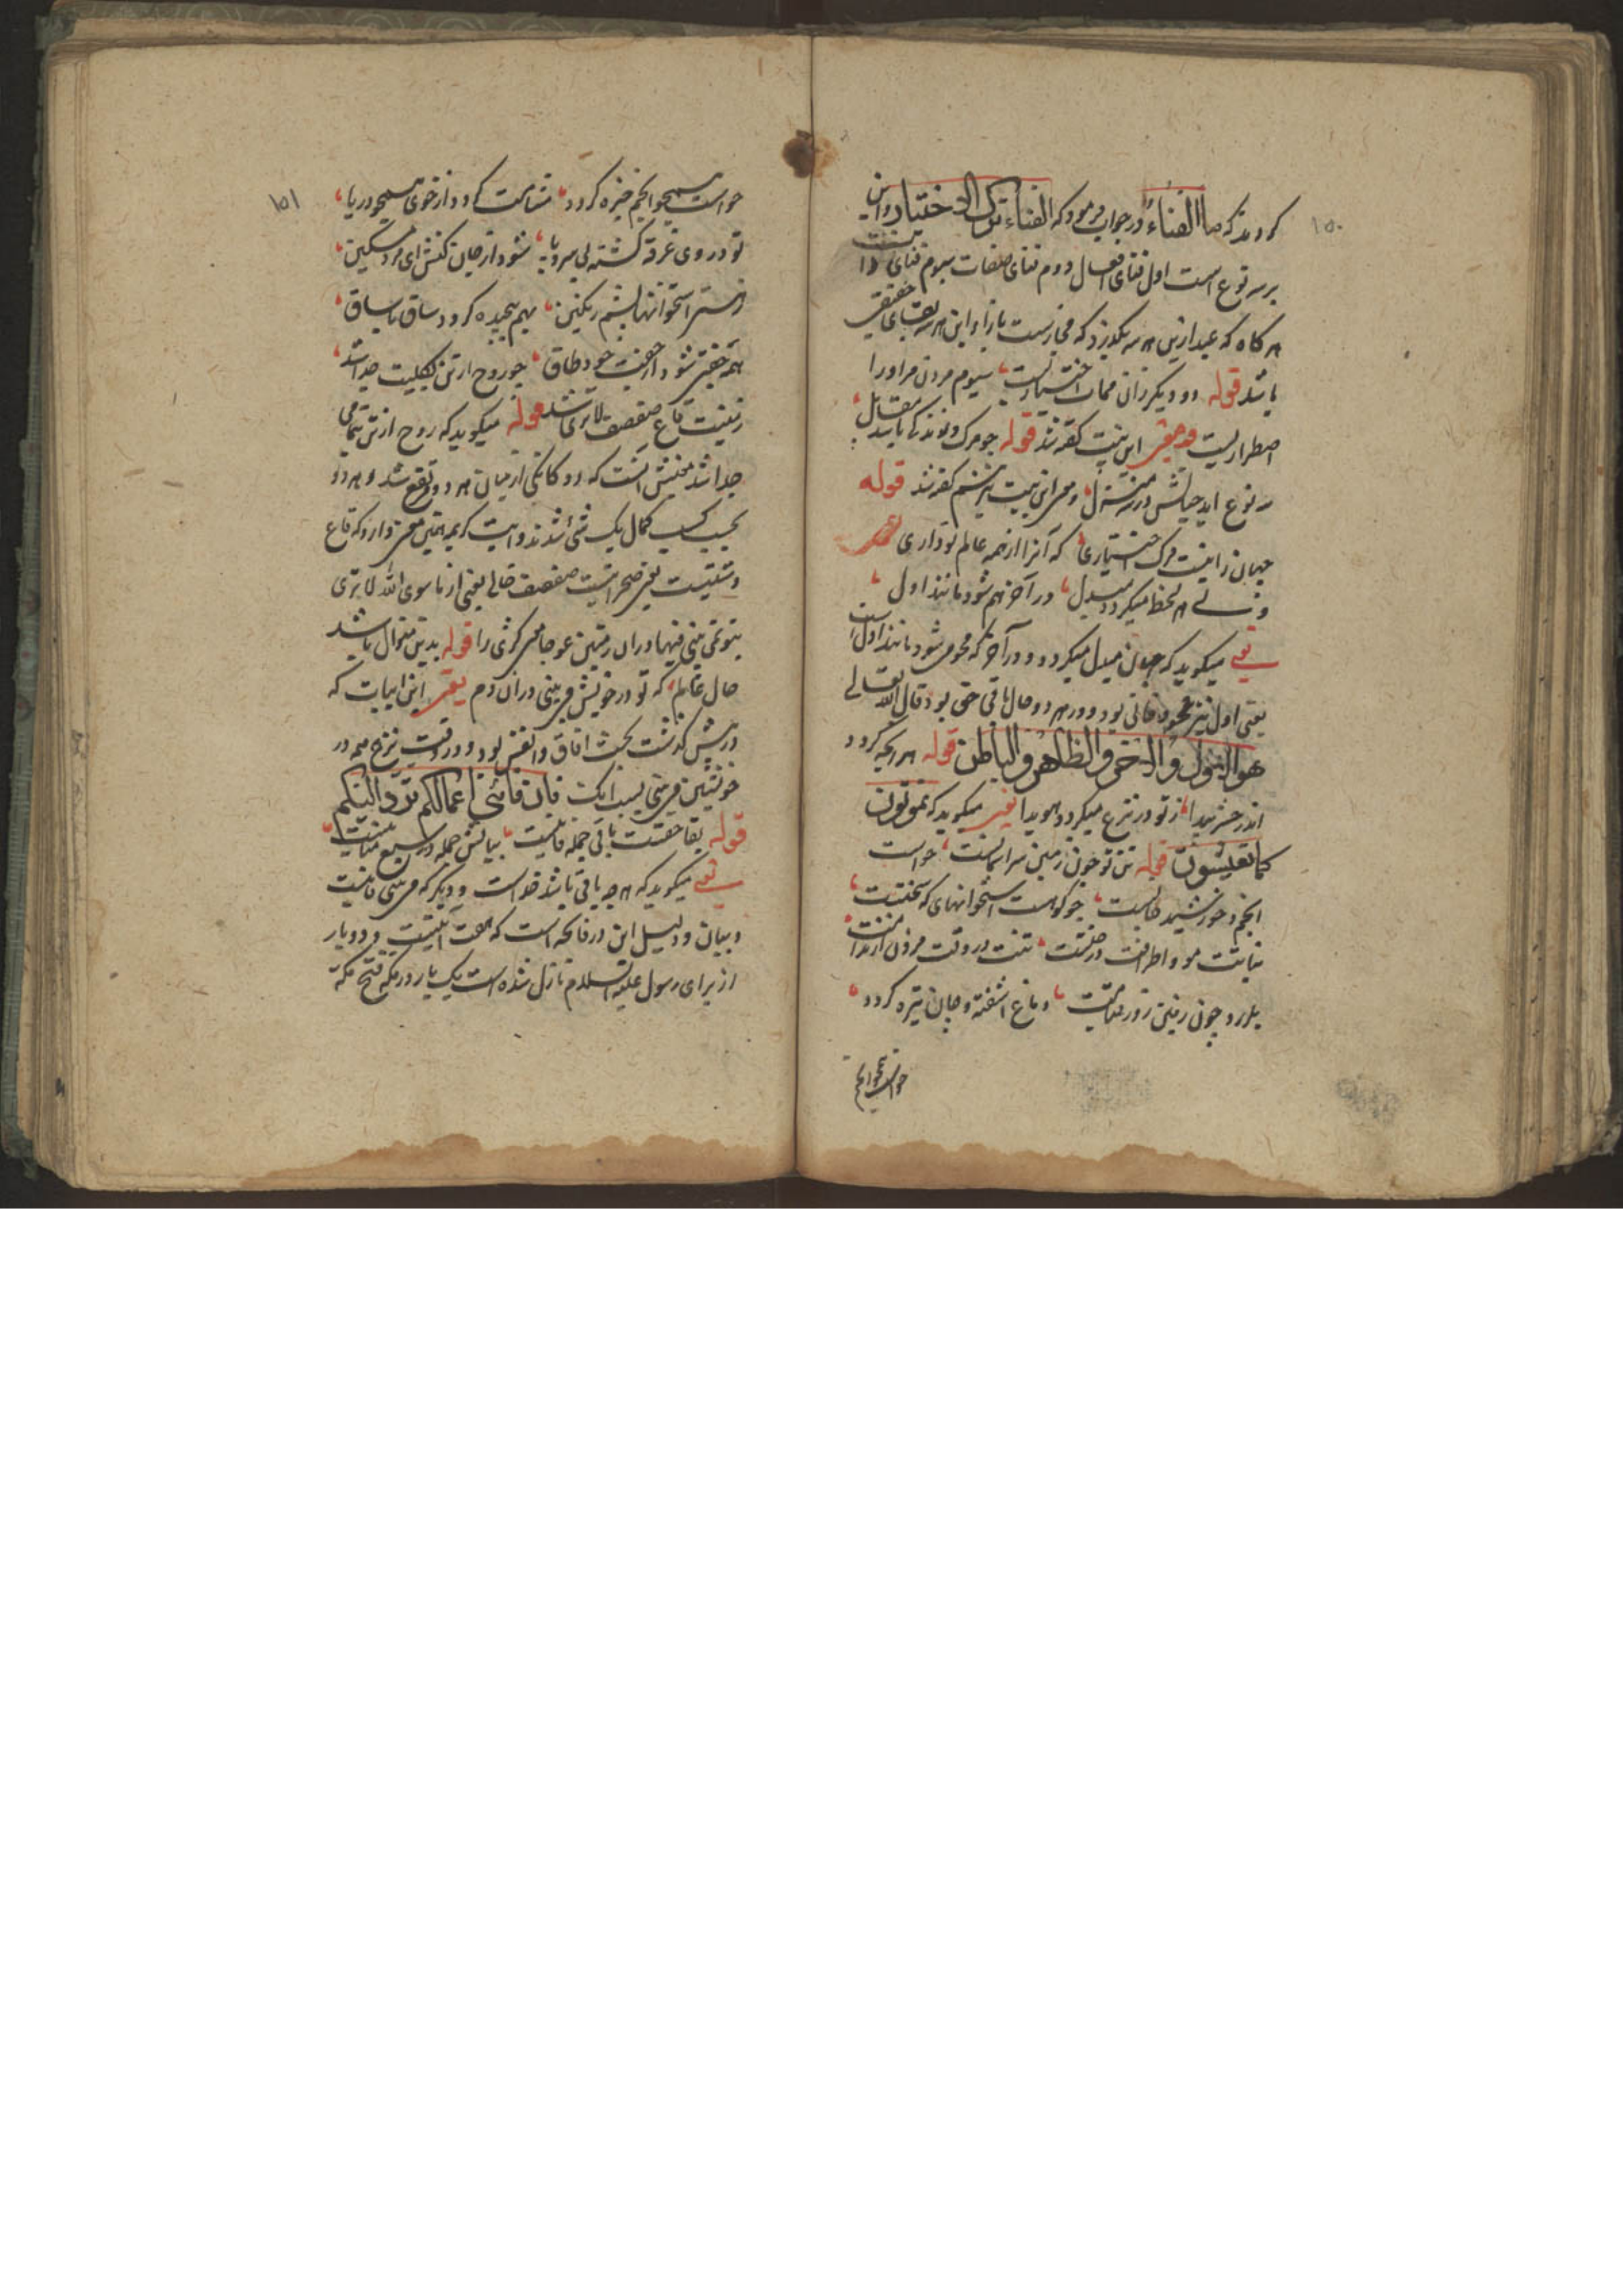 ۱۵۰
کردند که ما الفناء در جواب فرمود که الفناء ترک الاختیار و این
بر سه نوع است اول فنای افعال دوم فنای صفات سیوم فنای ذات
هر کاه که عبد ازین هر سه بکذرد که مجازیست باز او این هر سه بقای حقیقی
باشد قوله دو دیکر زان ممات اختیاریست سیوم مردن مر او را
اضطراریست این بیت کفتند قوله جو مرک و زندکی باشد مقابل
سه نوع آمد حیاتش در سه منزل و معنی این بیت نیز کفتند قوله
جهان را نیست مرک اختیاری که آنرا از همه عالم تو داری
ولی هر لحظه میکردد مبدل در آخر هم شود مانند اول
یعنی میکوید که جهان مبدل میکردد و در آخر که محو می شود مانند اول است
یعنی اول نیز محو و فانی بود و در هر دو حال باقی حق بود قال الله تعالی
هو الاول والآخر والظاهر والباطن قوله هر انچه کردد
اندر حشر پیدا ز تو در نزع میکردد هویدا یعنی میکوید که تموتون
کما تعیشون قوله تن تو چون زمین سر آسمانست حواست
انجم و خورشید جانست چو کوهست استخوانهای که سختست
نباتت مو و اطرافت درختست تنت در وقت مردن از ندامت
بلرزد چون زمین روز قیامت دماغ آشفته و جان تیره کردد
حواست همچو انجم
۱۵۱
حواست همچو انجم خیره کردد مشامت کردد از خوی همچو دریا
تو در وی غرقه کشته بی سر و پا شود از جان کنش ای مرد مسکین
ز سستی استخوانها پشم رنکین بهم پیچیده کردد ساق با ساق
همه جفتی شود از جفت خود طاق چو روح از تن بکلیت جدا شد
زمینت قاع صفصف لاتری شد قوله میکوید که روح از تن بتمامی
جدا شد معنیش آنست که دو کانکی از میان هر دو رفع شد و هر دو
بحسب کسب کمال یک شی شدند و آیت کریمه همین معنی دارد که قاع
دشتیست یعنی صحراییست صفصف خالی یعنی از ماسوی الله لاتری
تو نمی بینی فیها در آن زمین عوجا هیچ کژی را قوله بدین منوال باشد
حال عالم که تو در خویش می بینی در آن دم یعنی این ابیات که
در پیش کذشت بحث آفاق و انفس بود و در وقت نزع همه در
خویشتن می بینی بسبب آنکه فان اعمالکم ترد الیکم
قوله بقا حقست باقی جمله فانیست بیانش جمله در سبع مثانیست
یعنی میکوید که هر چه باقی باشد خداست و دیکر که می بینی فانیست
و بیان و دلیل این در فاتحه است که هفت آیتست و دو بار
از برای رسول علیه السلام نازل شده است یک بار در مکه فتح مکه